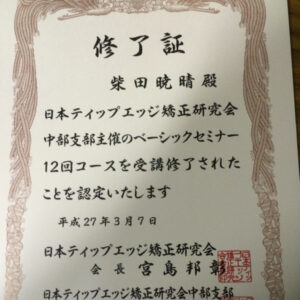 修了証
柴田暁晴 殿
日本ティップエッジ矯正研究会
中部支部主催のベーシックセミナー
12回コースを受講修了された
ことを認定いたします
平成27年3月7日
日本ティップエッジ矯正研究会
会長 宮島邦彰
日本ティップエッジ矯正研究会中部支部